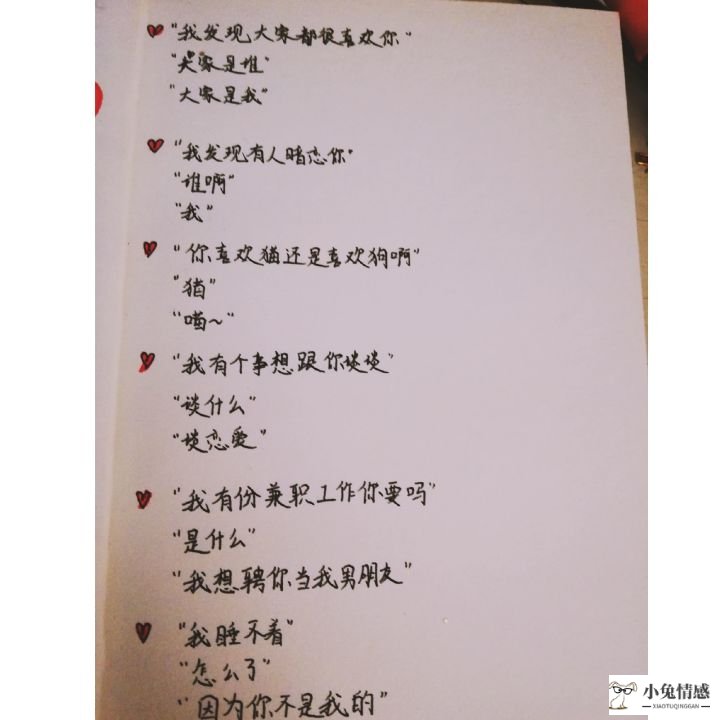 "我发现大家都很喜欢你"
"大家是谁"
"大家是我"
"我发现有人暗恋你"
"谁啊"
"我"
"你喜欢猫还是喜欢狗啊"
"猫"
"喵~"
"我有个事想跟你谈谈"
"谈什么"
"谈恋爱"
"我有份兼职工作你要吗"
"是什么"
"我想聘你当我男朋友"
"我睡不着"
"怎么了"
"因为你不是我的"
小兔情感
XIAOTUQINGGAN